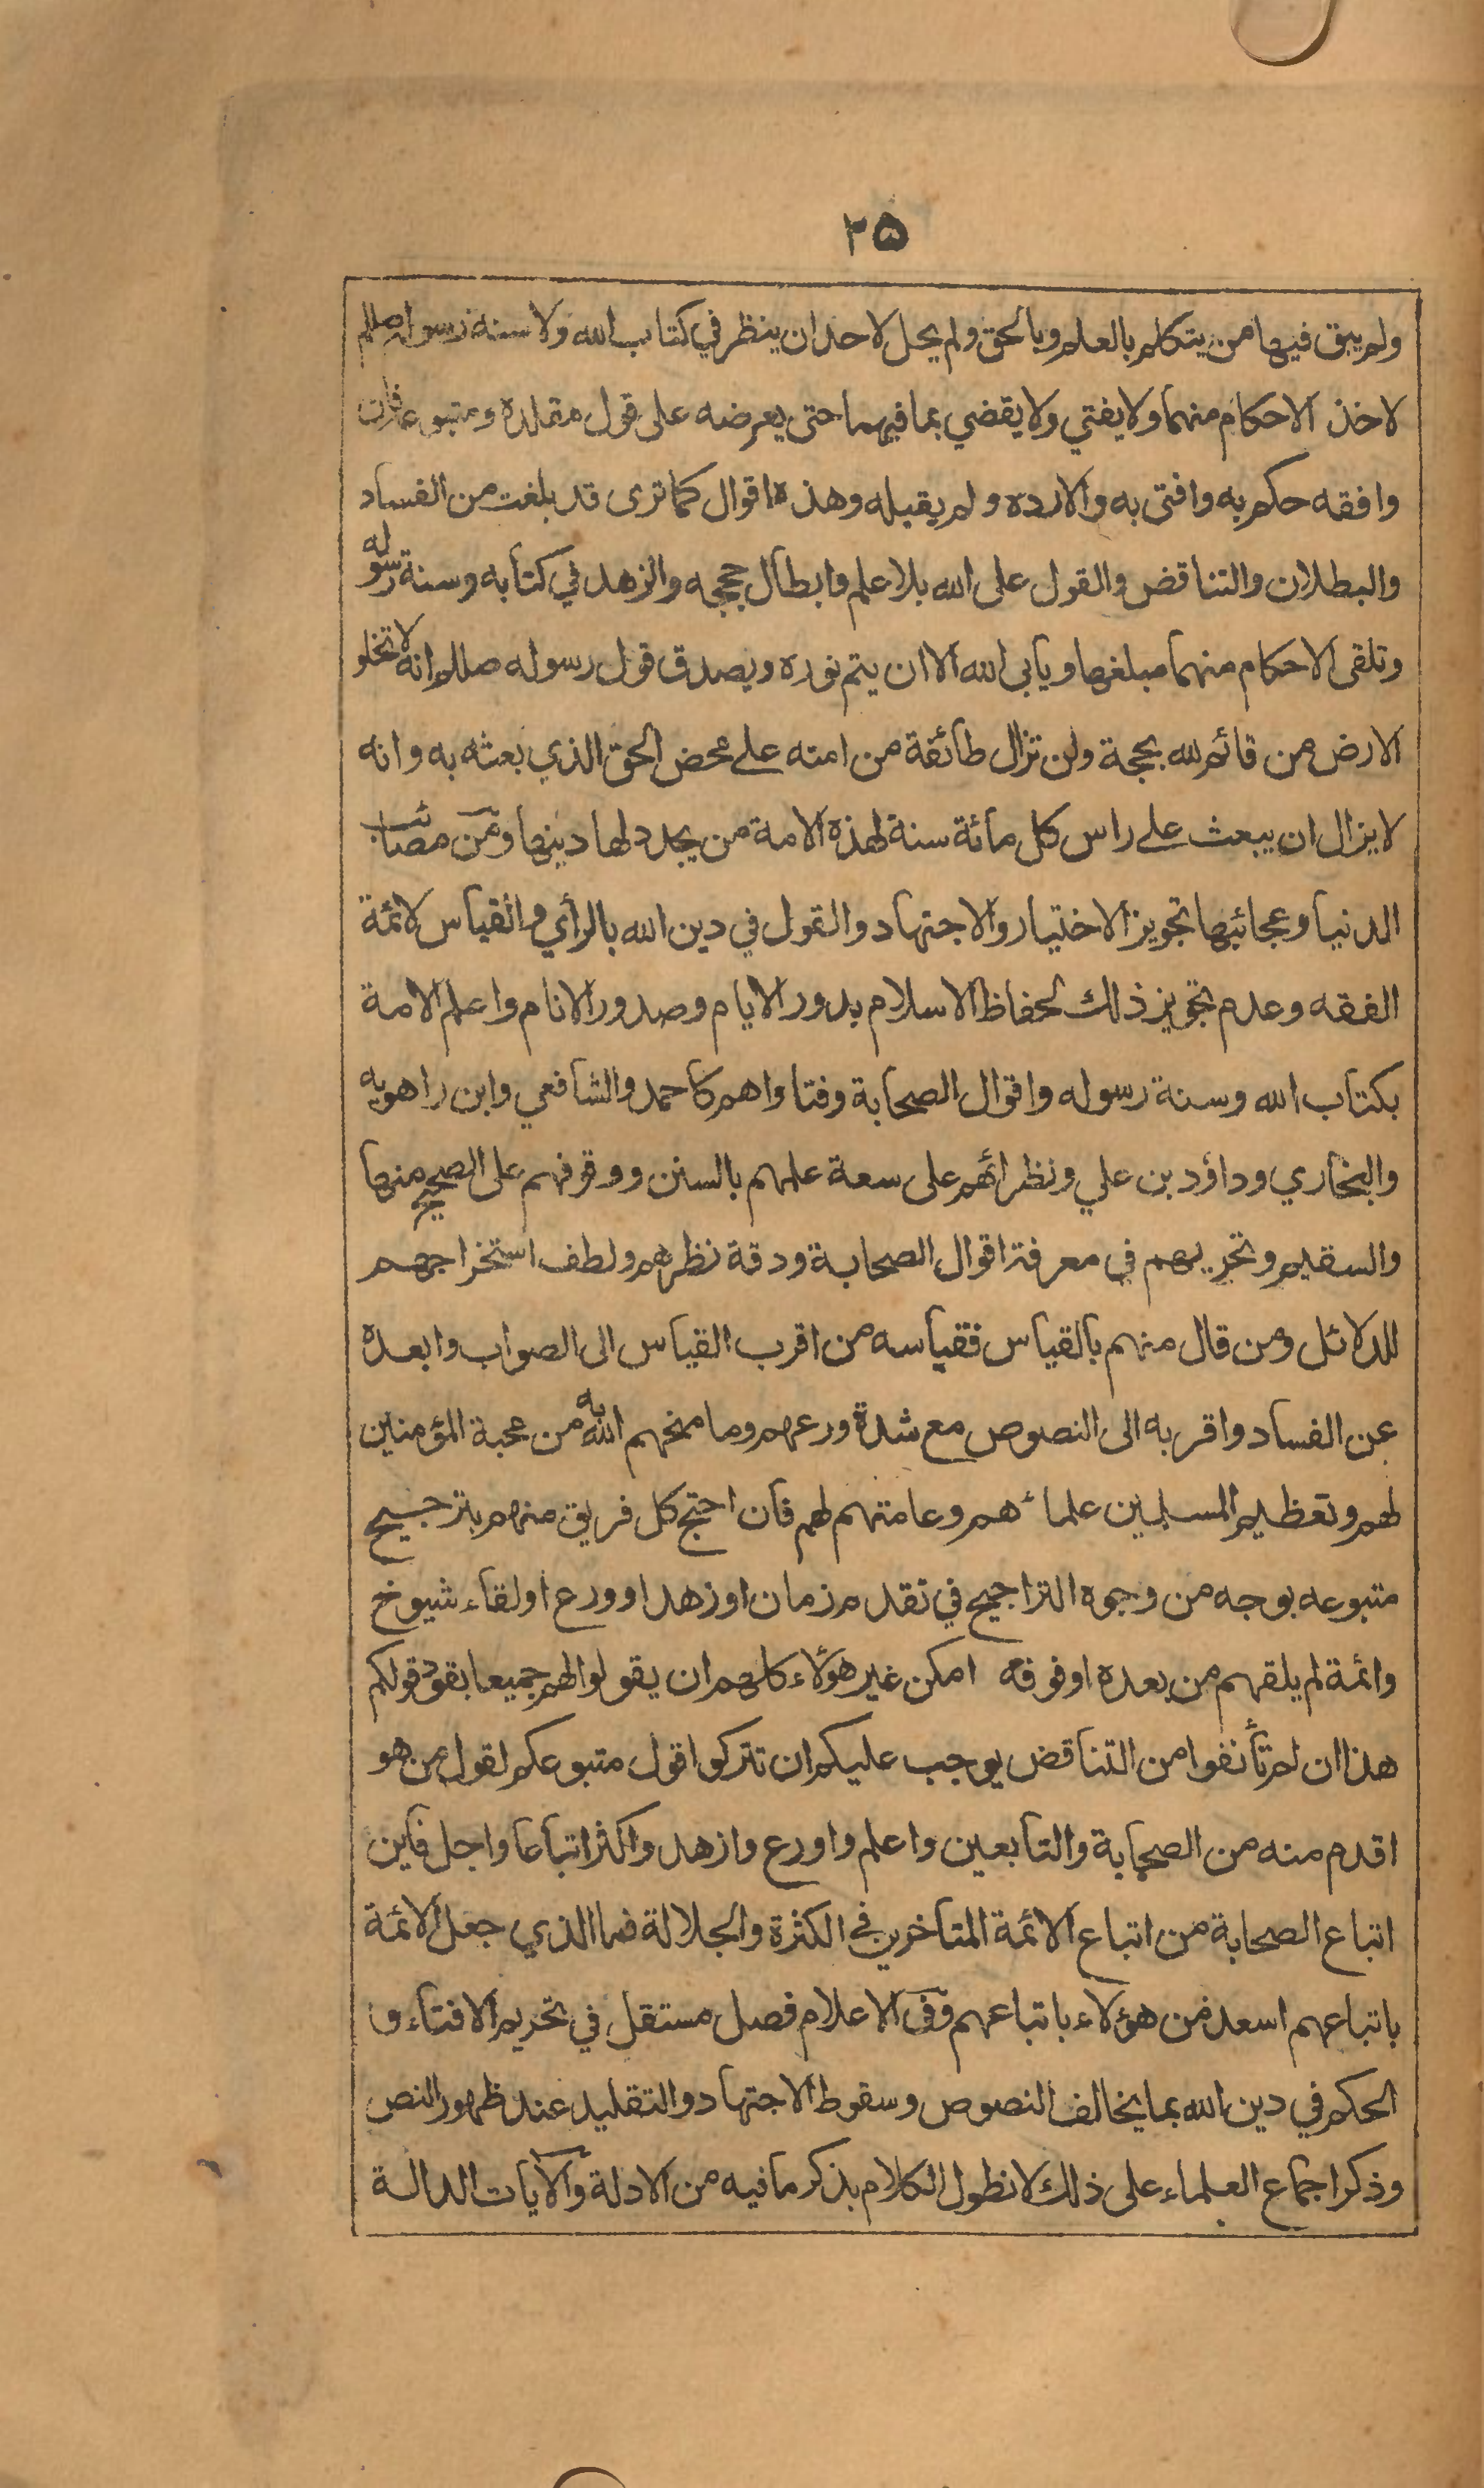 ۲۵
ولم يبق فيها من يتكلم بالعلم وبالحق ولم يحل لاحد ان ينظر في كتاب الله ولا سنة رسوله صللم
لاخذ الاحكام منهما ولا يفتي ولا يقضي بما فيهما حتى يعرضه على قول مقلده ومتبوعه فان
وافقه حكم به وافتى به والا رده ولم يقبله وهذه اقوال كما ترى قد بلغت من الفساد
والبطلان والتناقض والقول على الله بلا علم وابطال حججه والزهد في كتابه وسنة رسوله
وتلقى الاحكام منهما مبلغها ويابى الله الا ان يتم نوره ويصدق قول رسوله صللم انه لا تخلو
الارض من قائم لله بحجة ولن تزال طائفة من امته على محض الحق الذي بعثه به وانه
لا يزال ان يبعث على راس كل مائة سنة لهذه الامة من يجدد لها دينها ومن مصائب
الدنيا وعجائبها تجويز الاختيار والاجتهاد والقول في دين الله بالرأي والقياس لائمة
الفقه وعدم تجويز ذلك لحفاظ الاسلام بدور الايام وصدور الانام واعلم الامة
بكتاب الله وسنة رسوله واقوال الصحابة وفتاواهم كاحمد والشافعي وابن راهويه
والبخاري وداؤد بن علي ونظرائهم على سعة علمهم بالسنن ووقوفهم على الصحيح منها
والسقيم وتحريهم في معرفة اقوال الصحابة ودقة نظرهم ولطف استخراجهم
للدلائل ومن قال منهم بالقياس فقياسه من اقرب القياس الى الصواب وابعده
عن الفساد واقربه الى النصوص مع شدة ورعهم وما منحهم الله به من محبة المؤمنين
لهم وتعظيم المسلمين علمائهم وعامتهم لهم فان احتج كل فريق منهم بترجيح
متبوعه بوجه من وجوه التراجيح في تقدم زمان او زهد او ورع او لقاء شيوخ
وائمة لم يلقهم من بعده او فوقه امكن غير هؤلاء كلهم ان يقولوا لهم جميعا بقود قولكم
هذا ان لم تأنفوا من التناقض يوجب عليكم ان تتركوا قول متبوعكم لقول من هو
اقدم منه من الصحابة والتابعين واعلم واورع وازهد واكثر اتباعا واجل فاين
اتباع الصحابة من اتباع الائمة المتاخرين في الكثرة والجلالة فما الذي جعل الائمة
باتباعهم اسعد من هؤلاء باتباعهم وفى الاعلام فصل مستقل في تحريم الافتاء و
الحكم في دين الله بما يخالف النصوص وسقوط الاجتهاد والتقليد عند ظهور النص
وذكر اجماع العلماء على ذلك لا نطول الكلام بذكر ما فيه من الادلة والآيات الدالة